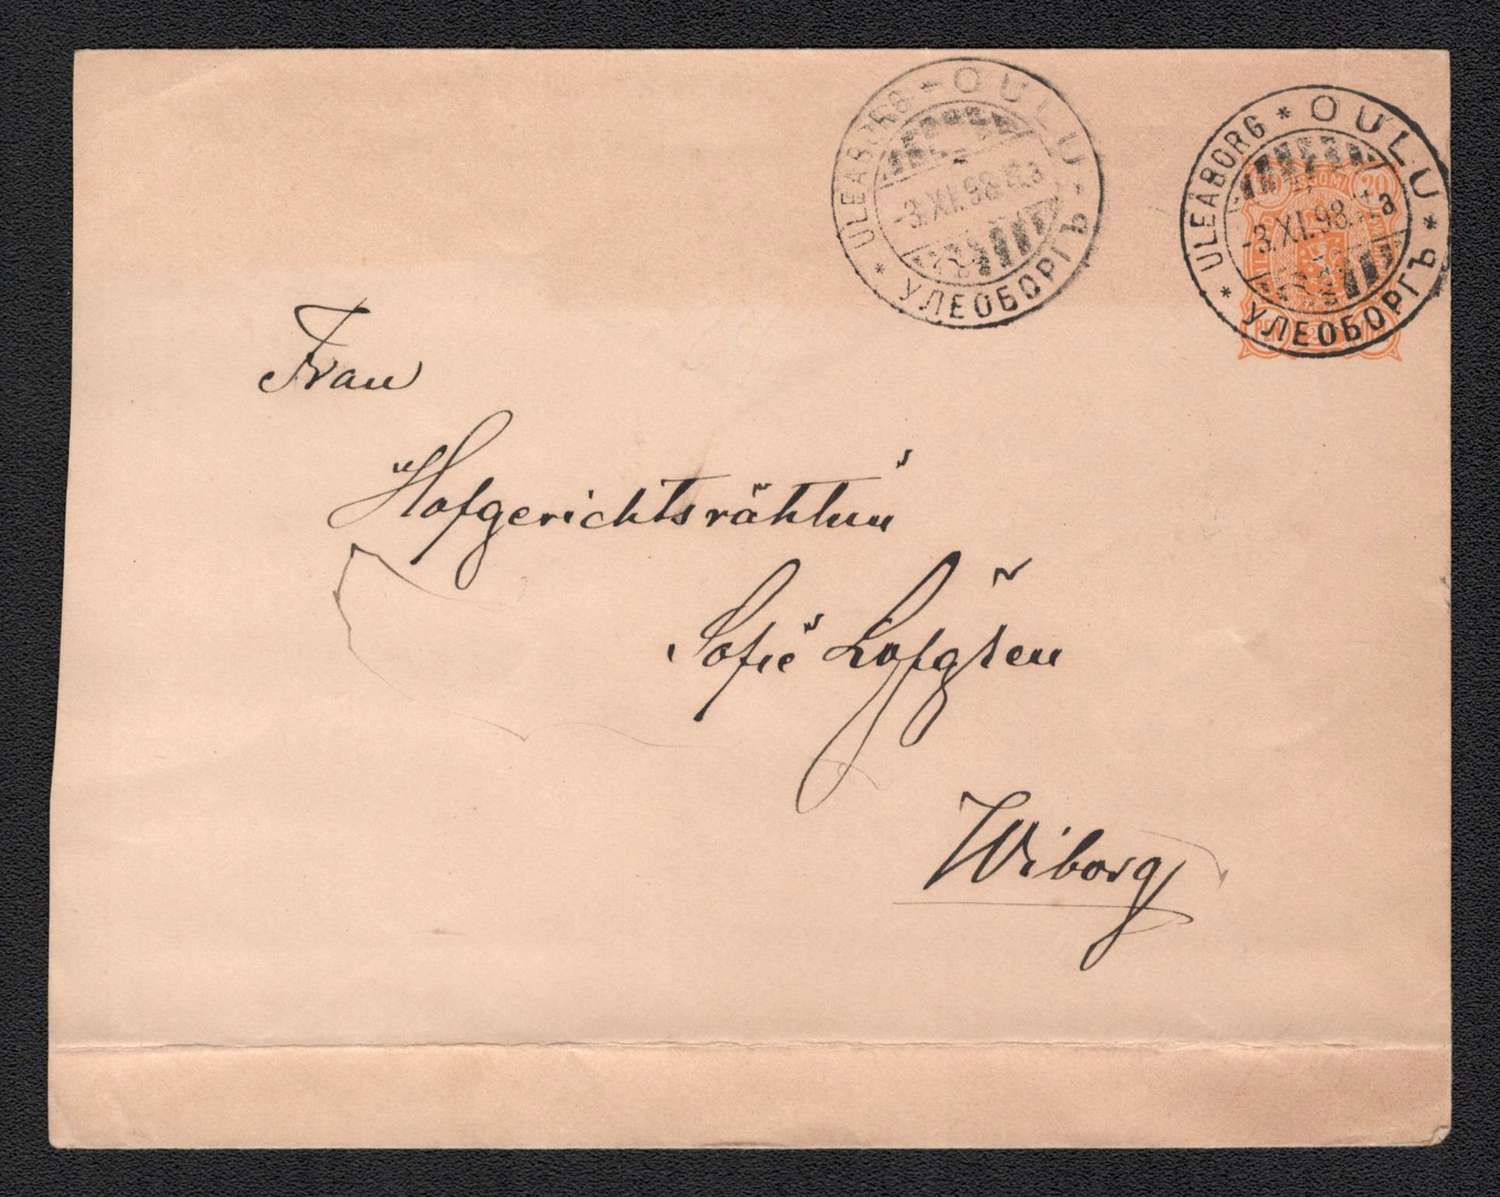 ULEABORG * OULU * УЛЕОБОРГЪ *
-3.XI.98.
ULEABORG * OULU * УЛЕОБОРГЪ *
-3.XI.98.
20
Frau
Hofgerichtsräthin
Sofie
Wiborg